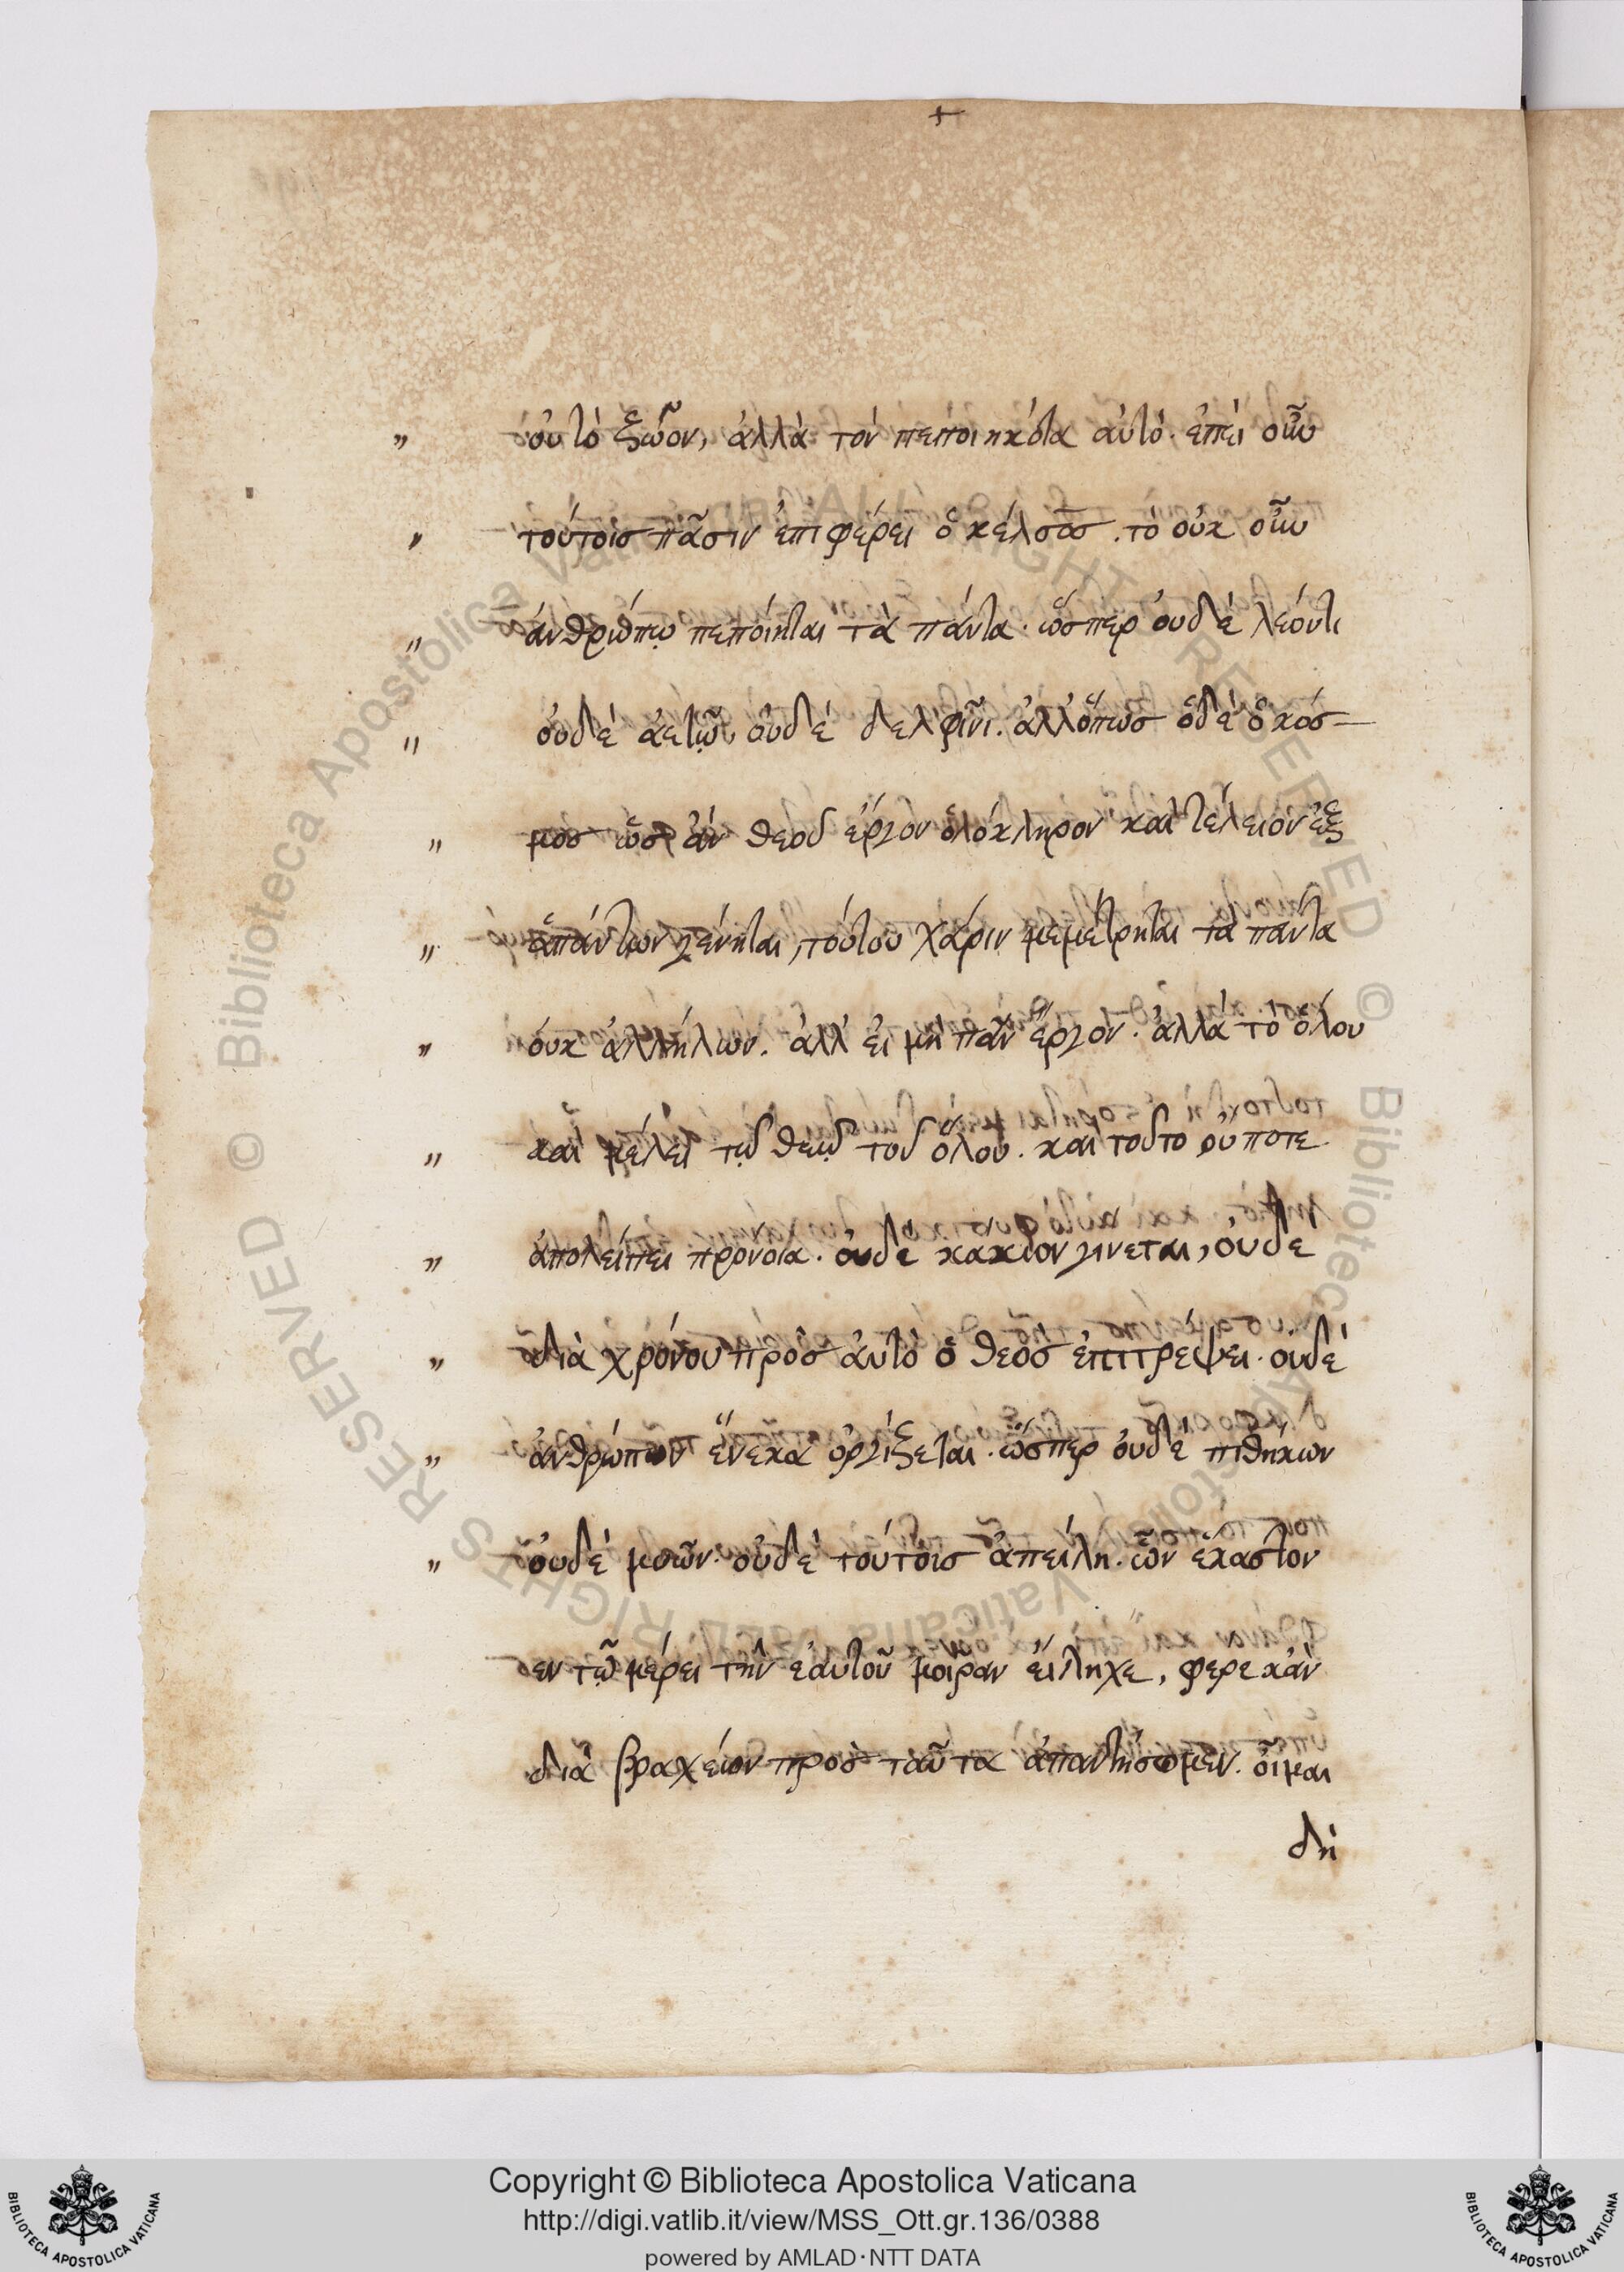 +
„ οὐ τὸ ζῶον, ἀλλὰ τὸν πεποιηκότα αὐτό. ἐπεὶ οὖν
„ τούτοις πᾶσιν ἐπιφέρει ὁ κέλσος. τὸ οὐκ οὖν
„ ἀνθρώπῳ πεποίηται τὰ πάντα. ὥσπερ οὐδὲ λέοντι
„ οὐδὲ ἀετῷ οὐδὲ δελφῖνι. ἀλλ' ὅπως ὅδε ὁ κόσ-
„ μος ὥσπερ ἂν θεοῦ ἔργον ὁλόκληρον καὶ τέλειον ἐξ
„ ἁπάντων γένηται, τούτου χάριν μεμέτρηται τὰ πάντα
„ οὐκ ἀλλήλων. ἀλλ' εἰ μὴ πᾶν ἔργον. ἀλλὰ τὸ ὅλου
„ καὶ μέλει τῷ θεῷ τοῦ ὅλου. καὶ τοῦτο οὔποτε
„ ἀπολείπει πρόνοια. οὐδὲ κακιον γινεται, οὐδὲ
„ διὰ χρόνου πρὸς αὐτὸ ὁ θεὸς ἐπιτρέψει. οὐδὲ
„ ἀνθρώπων ἕνεκα ὀργίζεται. ὥσπερ οὐδὲ πιθήκων
„ οὐδὲ μυῶν. οὐδὲ τούτοις ἀπειλῆ. ὧν ἕκαστον
εν τῷ μέρει τὴν ἑαυτοῦ μοῖραν εἴληχε, φερε κἂν
διὰ βραχέων πρὸς ταῦτα ἀπαντήσωμεν. οἶμαι
δὴ
Copyright © Biblioteca Apostolica Vaticana
http://digi.vatlib.it/view/MSS_Ott.gr.136/0388
powered by AMLAD·NTT DATA
BIBLIOTECA APOSTOLICA VATICANA
BIBLIOTECA APOSTOLICA VATICANA